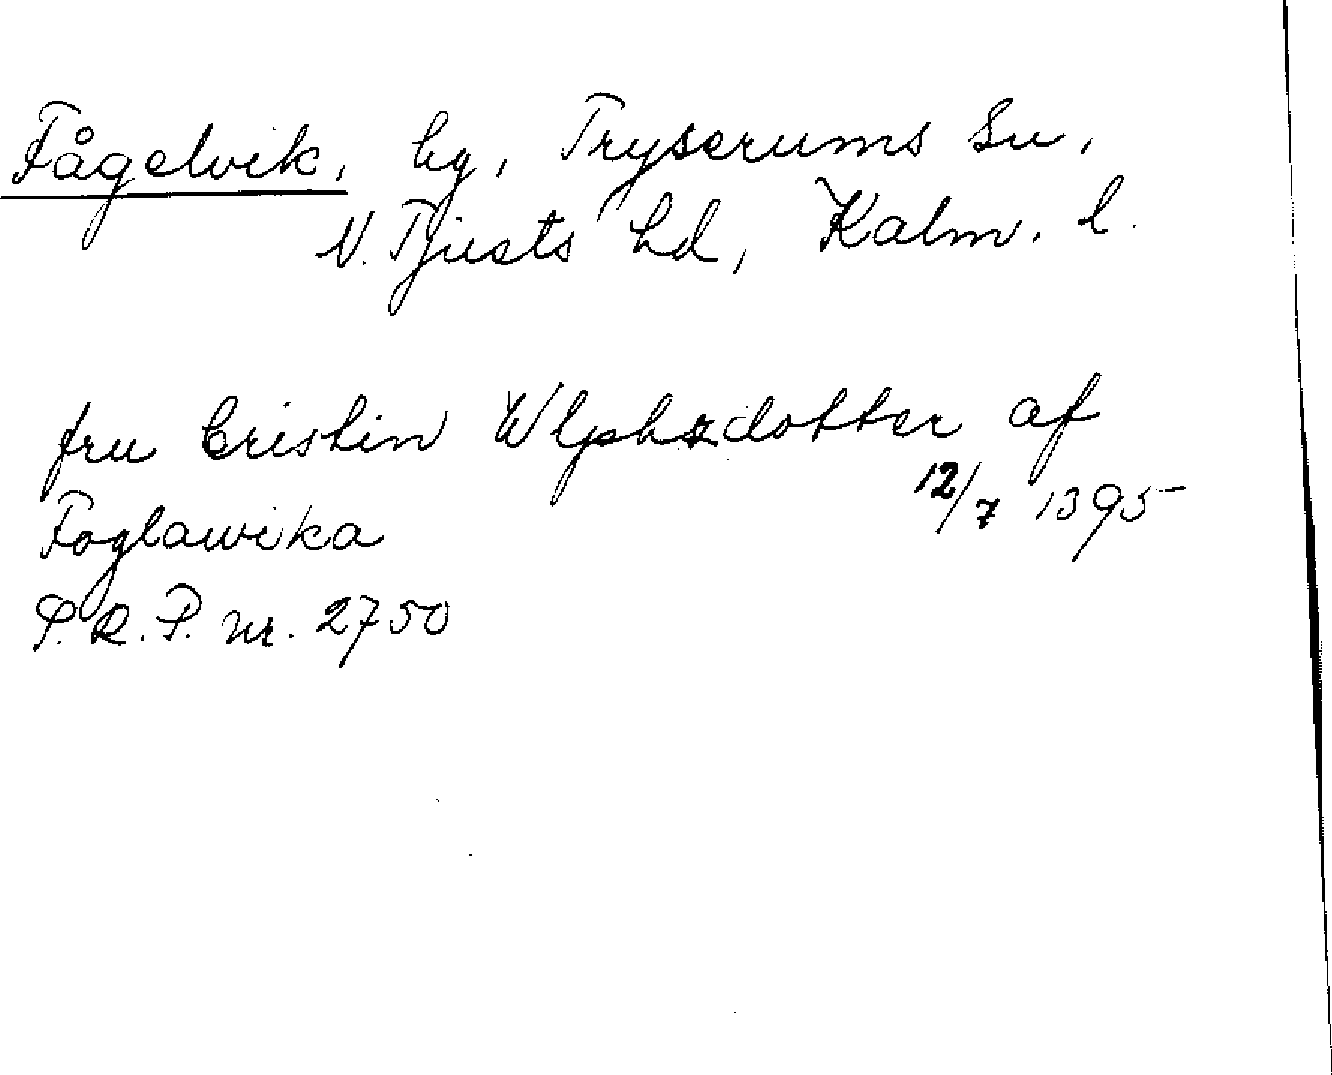 Fågelvik, hg, Tryserums sn,
N. Tjusts hd, Kalm. l.
fru Cristin Wlphsdotter af
Foglawika 12/7 1395
S.R.P. nr. 2750